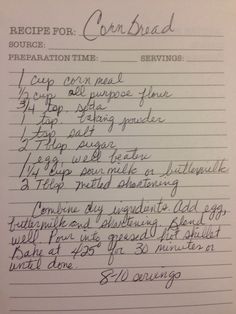 RECIPE FOR: Corn Bread
SOURCE:
PREPARATION TIME: SERVINGS:
1 cup corn meal
1/2 cup all purpose flour
3/4 tsp. soda
1 tsp. baking powder
1 tsp salt
2 Tbsp sugar
1 egg, well beaten
1 1/4 cup sour milk or buttermilk
2 Tbsp melted shortening
Combine dry ingredients. Add egg,
buttermilk and shortening. Blend
well. Pour into greased hot skillet
Bake at 425° for 30 minutes or
until done.
8-10 servings